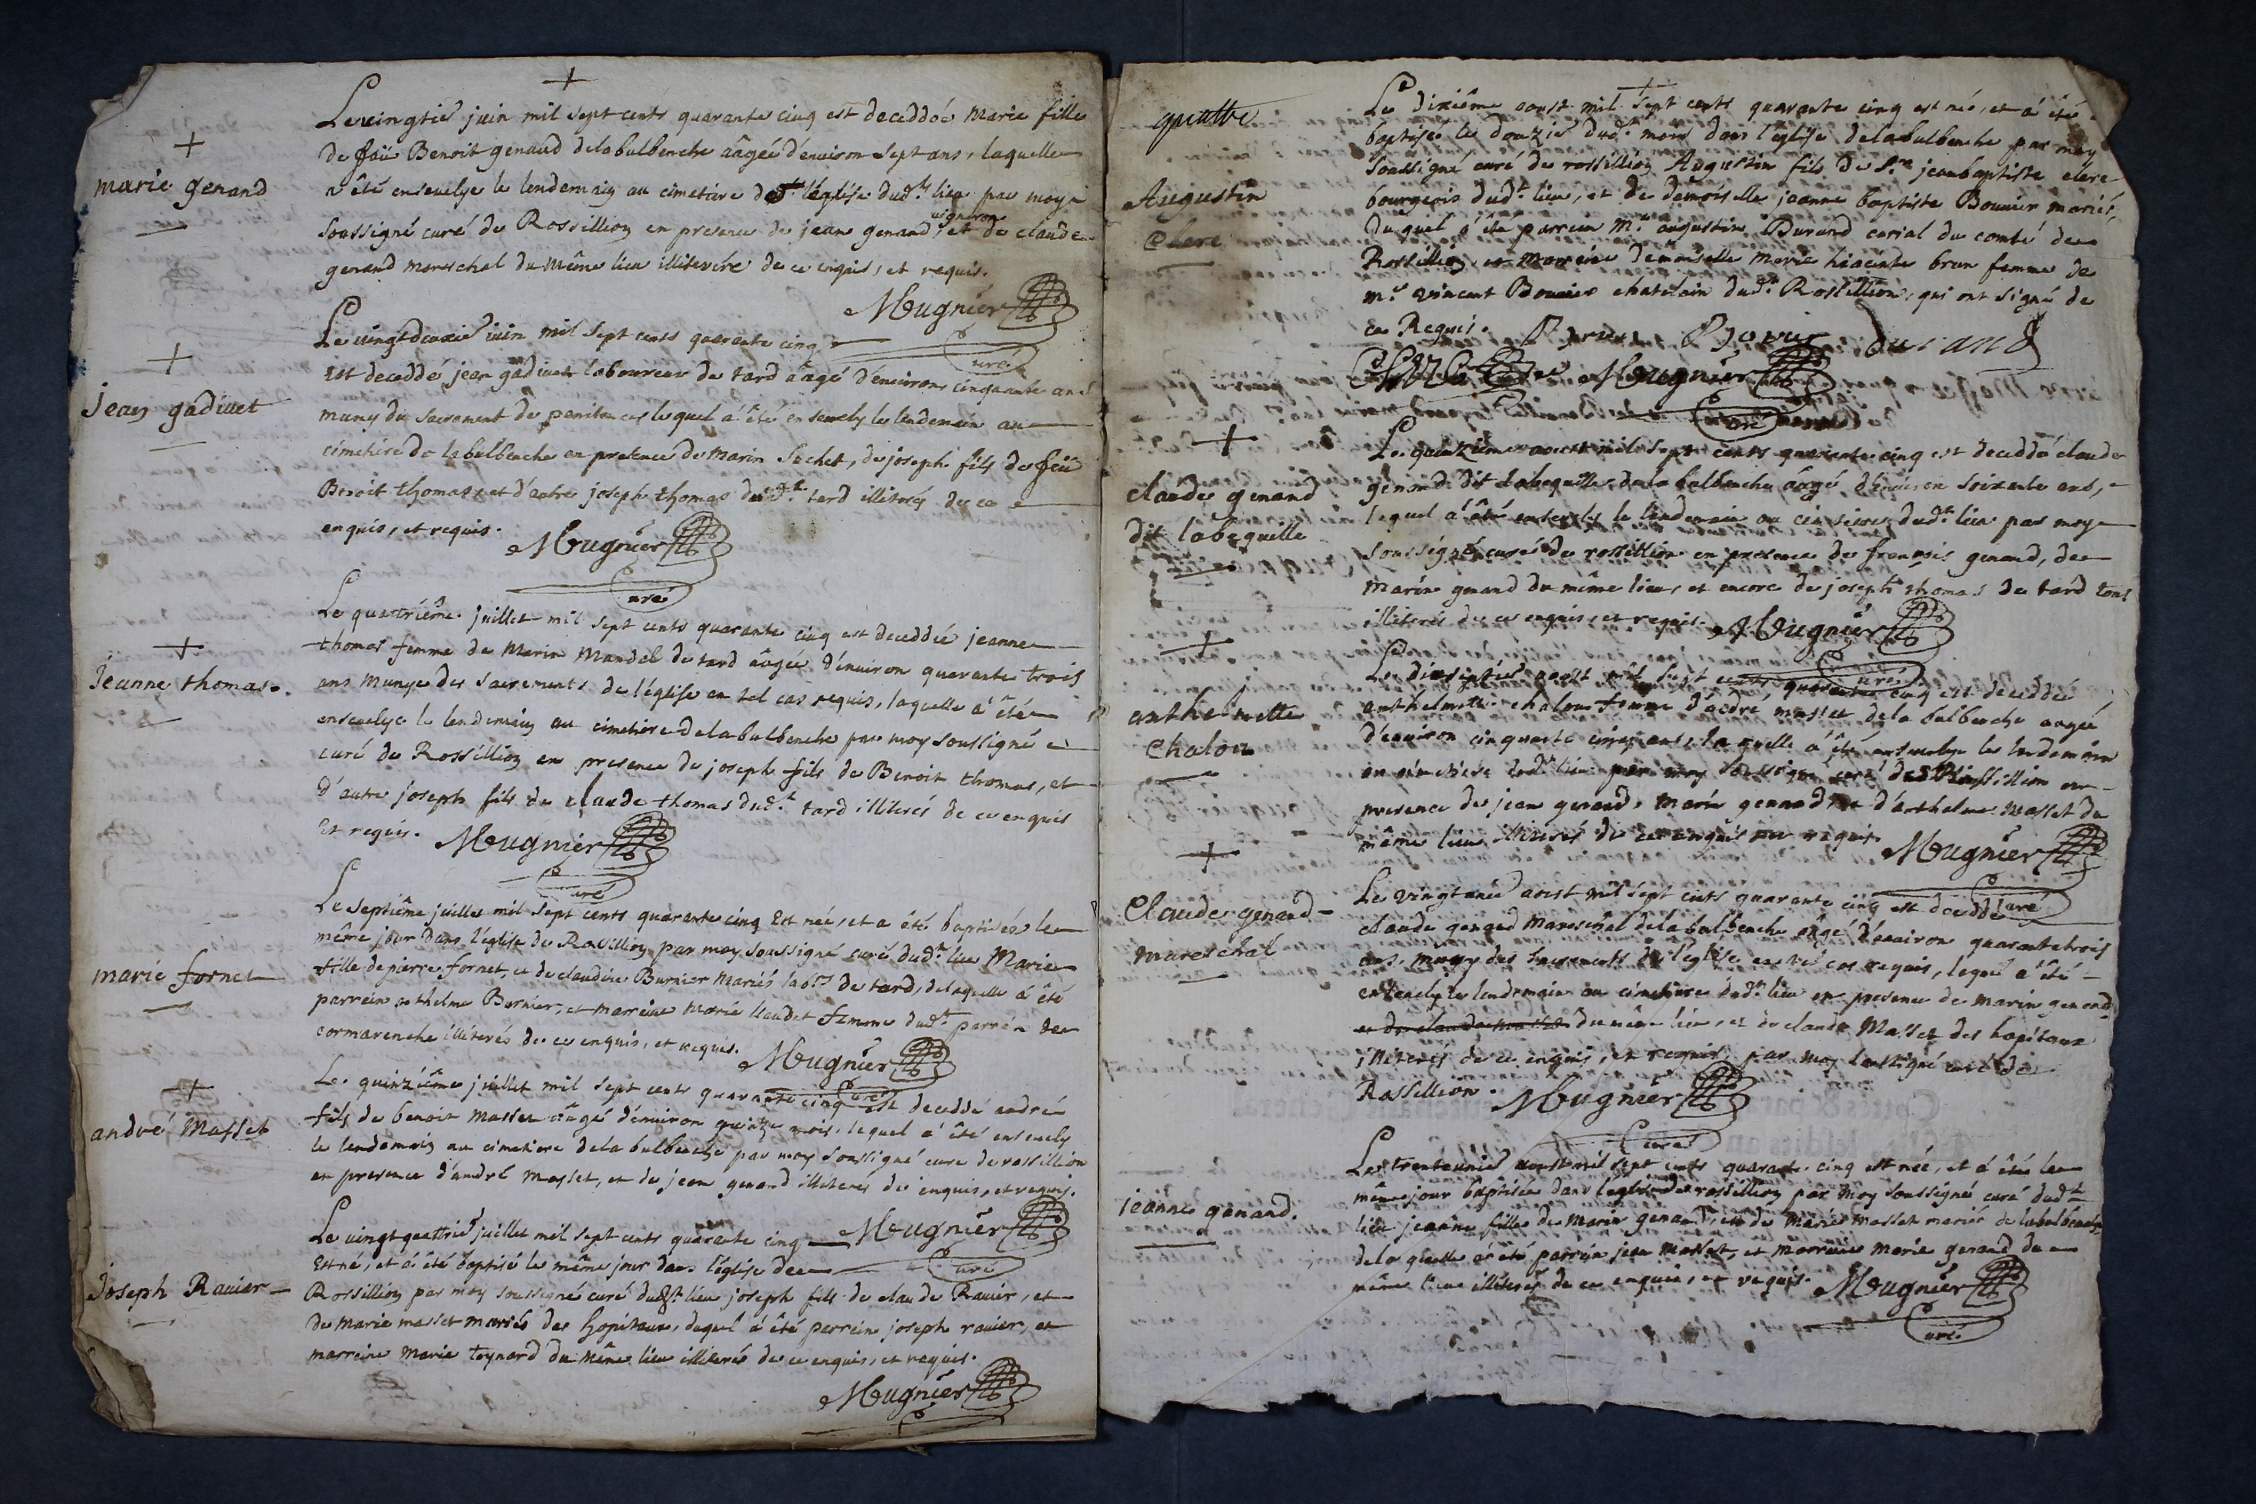 +
Le vingtie juin mil sept cents quarante cinq est deceddée Marie fille
+
marie genand
de feü Benoit genand delabalbenche aâgée d'environ sept ans, laquelle
a été ensevelye le lendemain au cimetiere de l'église dud.t lieu par moy
vigneron
soussigné curé de Rossillion en presence de jean genand, et de claude
genand mareschal du même lieu illiterés de ce enquis, et requis.
Mugnier
curé
Le vingtdeuxie juin mil sept cents quarante cinq
+
jean gadivet
est deceddé jean gadivet laboureur de tard aâgé d'environ cinquante ans
muny du sacrement de penitence lequel a été ensevely le lendemain au
cimetiere de labalbenche en presence de Marin Sachet, de joseph fils de feü
Benoit thomas, et d'autre joseph thomas dud.t tard illiterés de ce
enquis, et requis.
Mugnier
curé
Le quatriême juillet mil sept cents quarante cinq est deceddée jeanne
+
Jeanne thomas.
thomas femme de Marin Mandel de tard aâgée d'environ quarante trois
ans munye des sacrements de l'église en tel cas requis, laquelle a été
ensevelye le lendemain au cimetiere delabalbenche par moy soussigné
curé de Rossillion en presence de joseph fils de Benoit thomas, et
d'autre joseph fils de claude thomas dud.t tard illiterés de ce enquis
et requis.
Mugnier
curé
Le septiême juillet mil sept cents quarante cinq Est née, et a été baptisée le
même jour dans l'église de Rossillion par moy soussigné curé dud.t lieu Marie
marie fornet
fille de pierre fornet, et de claudine Burnier mariés lab.rs de tard, de laquelle a été
parrein anthelme Burnier, et marreine Marie claudet femme dud.t parrein de
cormarenche illiterés de ce enquis, et requis.
Mugnier
curé
Le quinziême juillet mil sept cents quarante cinq est deceddé andré
+
andré Masset
fils de benoit masset aâgé d'environ quinze mois, lequel a été ensevely
le lendemain au cimetiere delabalbenche par moy soussigné curé de rossillion
en presence d'andré masset, et de jean genand illiterés de enquis, et requis.
Mugnier
curé
Le vingt quattrie juillet mil sept cents quarante cinq
Est né, et a été baptisé le même jour dans l'église de
Joseph Ravier
Rossillion par moy soussigné curé dud.t lieu joseph fils de claude Ravier, et
de Marie masset mariés des hopitaux, duquel a été parrein joseph ravier, et
marreine Marie teynard du même lieu illiterés de ce enquis, et requis.
Mugnier
quatre
Le dixiême aoust mil sept cents quarante cinq est né, et a été
baptisé le douzie dud.t mois dans l'église delabalbenche par moy
Augustin
Clerc
soussigné curé de rossillion Augustin fils de S.r jeanbaptiste clerc
bourgeois dud.t lieu, et de demoiselle jeanne baptiste Bouvier mariés,
duquel a été parrein M.e augustin Durand curial du comté de
Rossillion, et marreine demoiselle Marie hiacinte brun femme de
m.e vincent Bouvier chatelain dud.t Rossillion, qui ont signé de
ce Requis.
Durand
Mugnier
curé
+
Le quinziême aoust mil sept cents quarante cinq est deceddé claude
claude genand
dit labequille
genand dit Labequille delabalbenche aâgé d'environ soixante ans,
lequel a été ensevely le lendemain au cimetiere dud.t lieu par moy
soussigné curé de rossillion en presence de françois genand, de
Marin genand du même lieu, et encore de joseph thomas de tard tous
illiterés de ce enquis, et requis.
Mugnier
curé
+
Le dixseptie aoust mil sept cents quarante cinq est deceddée
anthelmette
Chalon
anthelmette chalon femme d'andré masset delabalbenche aagée
d'environ cinquante cinq ans, laquelle a été ensevelye le lendemain
au cimetiere dud.t lieu par moy soussigné curé de Rossillion en
presence de jean genand, Marin genand et d'anthelme Masset du
même lieu illiterés de ce enquis et requis.
Mugnier
curé
+
Claude genand
mareschal
Le vingtunie aoust mil sept cents quarante cinq est deceddé
claude genand Mareschal delabalbenche aâgé d'environ quarantetrois
ans, muny des sacrements de l'église en tel cas requis, lequel a été
ensevely le lendemain au cimetiere dud.t lieu en presence de marin genand
du même lieu, et de claude Masset des hopitaux
illiterés de ce enquis, et requis, par moy soussigné curé de
Rossillion.
Mugnier
curé
Le trenteunie aoust mil sept cents quarante cinq est née, et a été le
même jour baptisée dans l'église de rossillion par moy soussigné curé dud.t
jeanne genand.
lieu jeanne fille de Marin genand, et de Marie masset mariés de labalbenche
delaquelle a été parrein jean masset, et marreine Marie genand du
même lieu illiterés de ce enquis, et requis.
Mugnier
curé